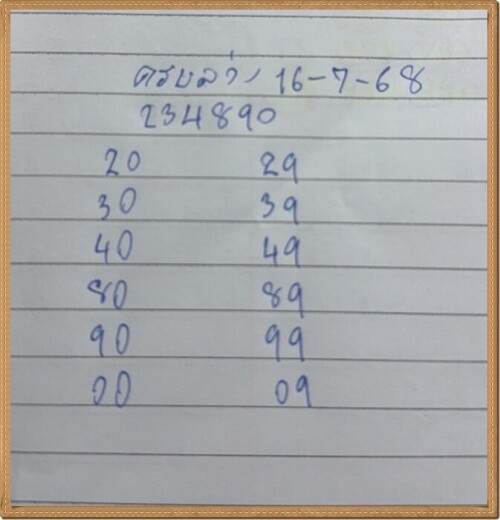 ครบล่าง 16-7-68
234890
20 29
30 39
40 49
80 89
90 99
00 09